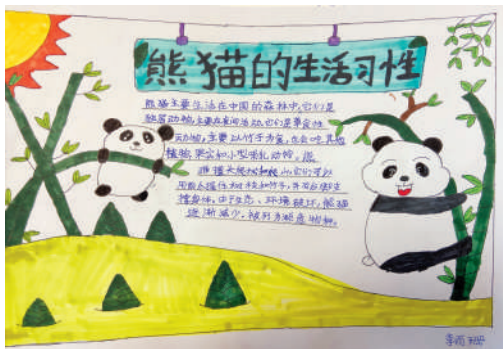 熊猫的生活习性
熊猫主要生活在中国的森林中,它们是
独居动物,主要在夜间活动,它们是草食性
动物,主要以竹子为食,也会吃其他
植物、果实和小型哺乳动物。熊
猫擅长爬树和
用前爪握住树枝和竹子,并用后腿支
撑身体,由于生态、环境破坏,熊猫
逐渐减少,被列为濒危物种。